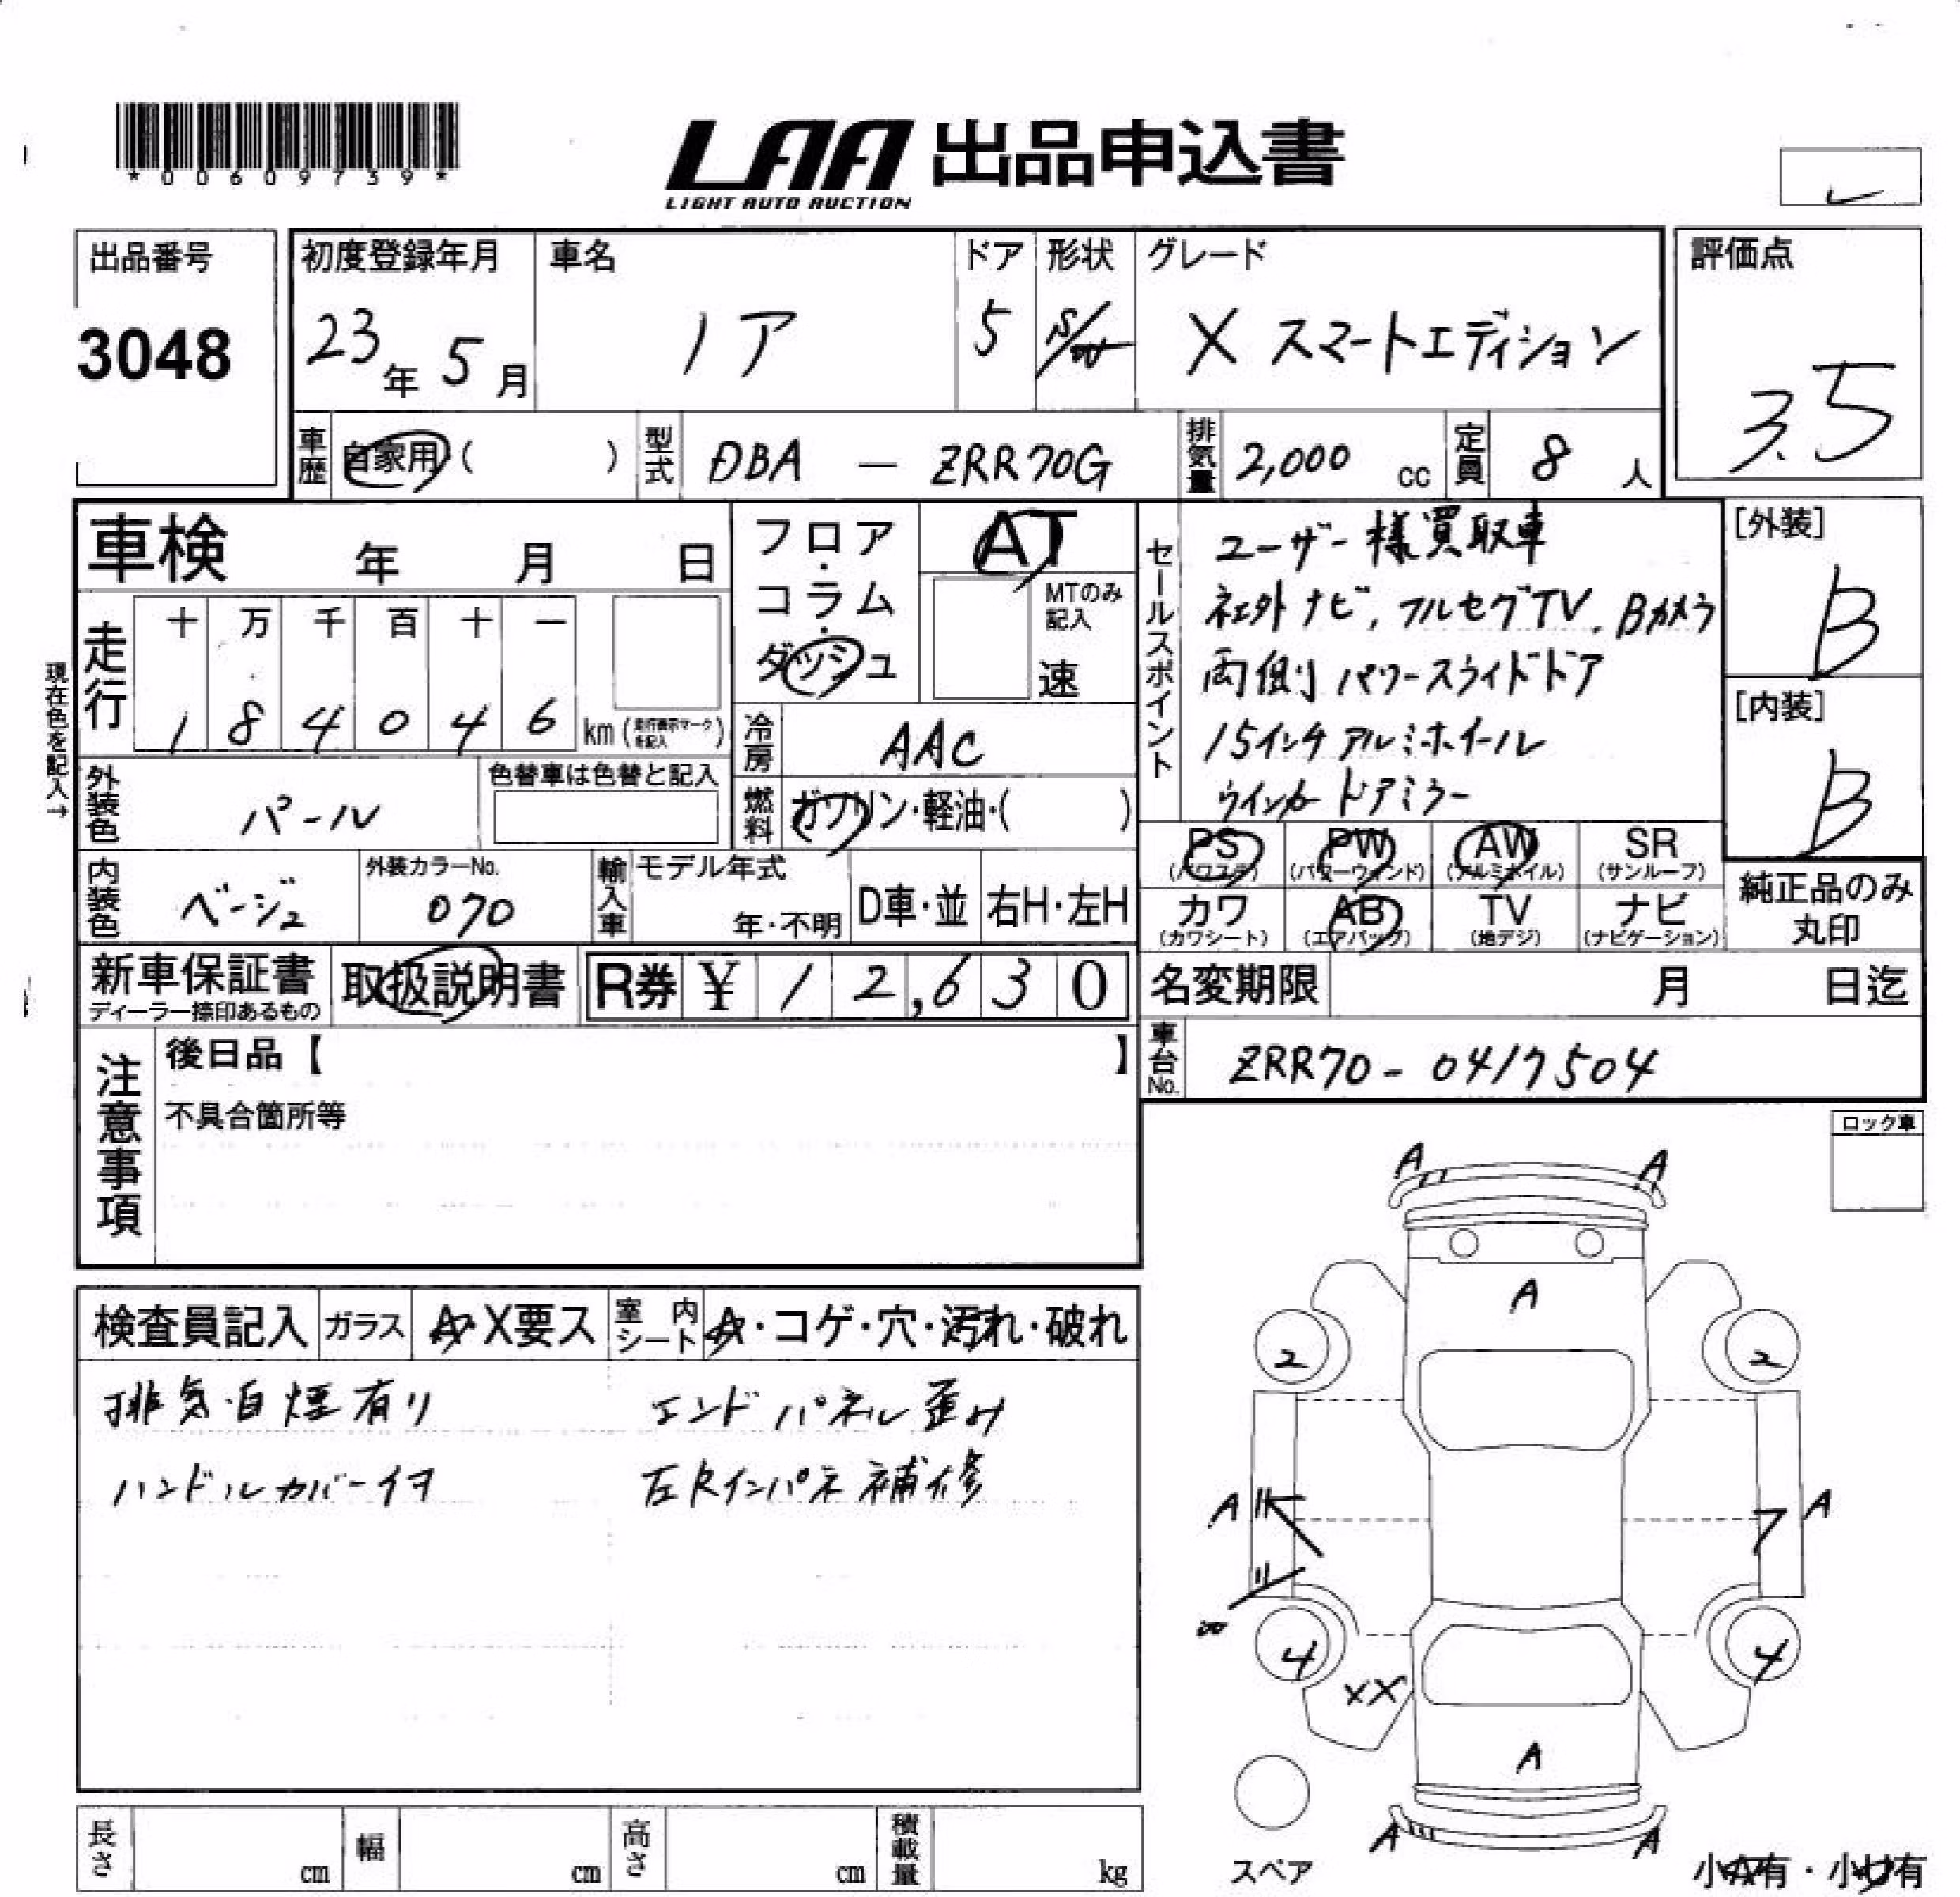 *00609739*
LAA 出品申込書
LIGHT AUTO AUCTION
出品番号
3048
初度登録年月
23年 5月
車名
ノア
ドア
5
形状
S/W
グレード
X スマートエディション
評価点
3.5
車歴
自家用・( )
型式
DBA — ZRR70G
排気量
2,000 cc
定員
8 人
車検 年 月 日
フロア・コラム・ダッシュ
AT
MTのみ記入
速
セールスポイント
ユーザー様買取車
社外ナビ, フルセグTV, Bカメラ
両側パワースライドドア
15インチアルミホイール
ウインカードアミラー
[外装]
B
[内装]
B
現在色を記入→
走行
十 万 千 百 十 一
1 8 4 0 4 6
km (走行表示マークを記入)
冷房
AAC
外装色
パール
色替車は色替と記入
燃料
ガソリン・軽油・( )
PS
(パワステ)
PW
(パワーウィンド)
AW
(アルミホイル)
SR
(サンルーフ)
カワ
(カワシート)
AB
(エアバッグ)
TV
(地デジ)
ナビ
(ナビゲーション)
純正品のみ
丸印
内装色
ベージュ
外装カラーNo.
070
輸入車
モデル年式
年・不明
D車・並
右H・左H
新車保証書
ディーラー捺印あるもの
取扱説明書
R券 ¥ 1 2,6 3 0
名変期限 月 日迄
車台No.
ZRR70-0417504
注意事項
後日品【 】
不具合箇所等
ロック車
検査員記入
ガラス
A・X要ス
室内シート
A・コゲ・穴・汚れ・破れ
排気白煙有り
エンドパネル歪み
ハンドルカバー付
左Rインパネ補修
A A
A
2 2
A A
4 4
XX
A
A A
スペア
小A有・小U有
長さ cm
幅 cm
高さ cm
積載量 kg